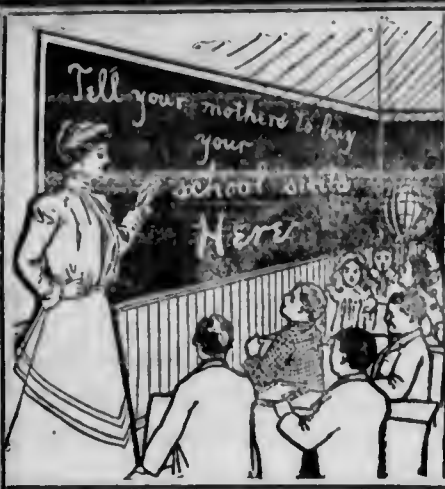 Tell your mothers to buy
your
school suits
Here